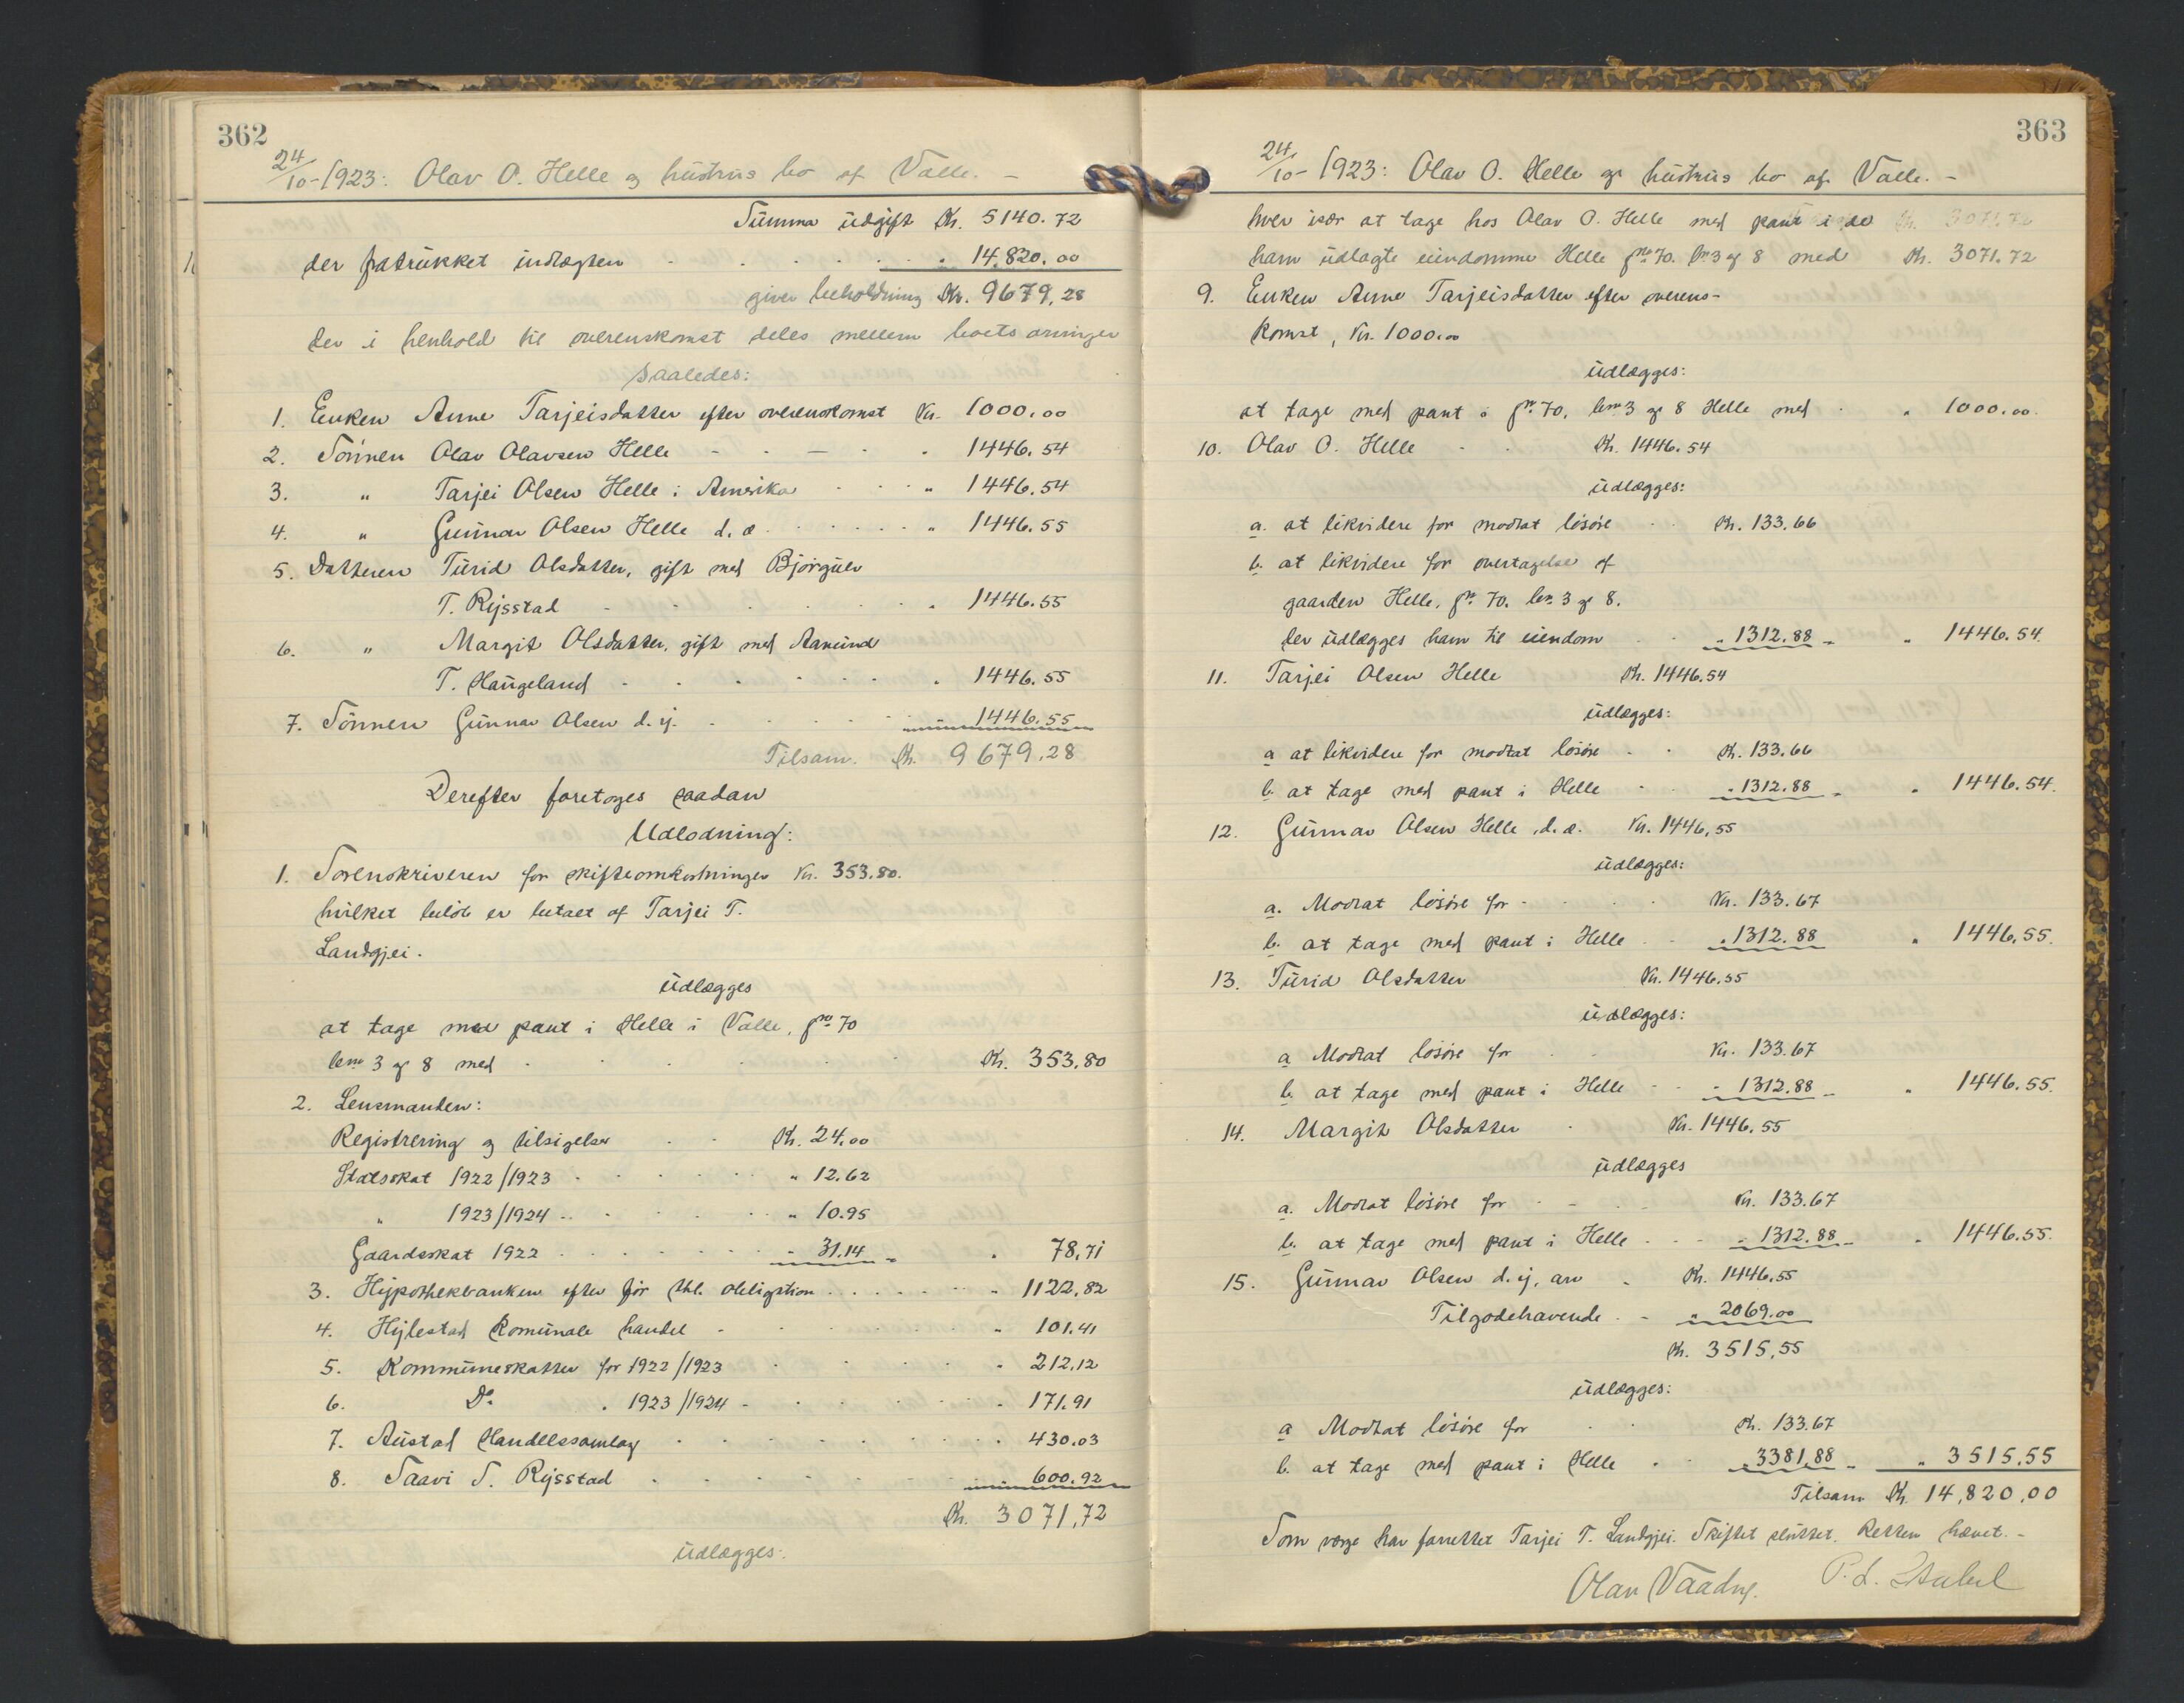 362
24/10-1923: Olav O. Helle og hustrus bo af Valle. -
Summa udgift Kr. 5140.72
der fratrukket indtægten - - - " 14.820.00
giver beholdning Kr. 9679,28
der i henhold til overenskomst deles mellem boets arvinger
saaledes:
1. Enken Anne Tarjeisdatter efter overenskomst Kr. 1000.00
2. Sønnen Olav Olavsen Helle - - - " 1446.54
3. " Tarjei Olsen Helle i Amerika - - " 1446.54
4. " Gunnar Olsen Helle d. æ. - - - " 1446.55
5. Datteren Turid Olsdatter, gift med Bjørgulv
T. Rysstad - - - " 1446.55
6. " Margit Olsdatter, gift med Aamund
T. Haugeland - - - " 1446.55
7. Sønnen Gunnar Olsen d. y. - - - " 1446.55
Tilsam. Kr. 9679,28
Derefter foretoges saadan
Udlodning:
1. Sorenskriveren for skifteomkostninger Kr. 353.80.
hvilket beløb er betalt af Tarjei T.
Landgjei.
udlægges
at tage med pant i Helle i Valle, gno 70
bno 3 og 8 med - - - Kr. 353,80
2. Lensmanden:
Registrering og tilsigelse - - Kr. 24.00
Statsskat 1922/1923 - - - " 12.62
" 1923/1924 - - - " 10.95
Gaardsskat 1922 - - - " 31.14 - " 78,71
3. Hypothekbanken efter før thl. obligation - - - " 1122,82
4. Hylestad komunale handel - - - " 101.41
5. Kommuneskatter for 1922/1923 - - - " 212,12
6. Do. " 1923/1924 - - - " 171.91
7. Austad Handelssamlag - - - " 430.03
8. Taavi T. Rysstad - - - " 600.92
Kr. 3071,72
udlægges:
363
24/10-1923: Olav O. Helle og hustrus bo af Valle. -
hver især at tage hos Olav O. Helle med pant i de
ham udlagte eiendomme Helle gno 70. bno 3 og 8 med Kr. 3071.72
9. Enken Anne Tarjeisdatter efter overens-
komst, Kr. 1000.00
udlægges:
at tage med pant i gno 70, bno 3 og 8 Helle med - " 1000.00.
10. Olav O. Helle - - Kr. 1446.54
udlægges:
a. at likvidere for modtat løsøre - - Kr. 133.66
b. at likvidere for overtagelse af
gaarden Helle, gno 70. bno 3 og 8.
der udlægges ham til eiendom - - " 1312.88 - " 1446.54.
11. Tarjei Olsen Helle Kr. 1446.54
udlægges:
a at likvidere for modtat løsøre - - Kr. 133.66
b. at tage med pant i Helle - - " 1312.88 - " 1446.54.
12. Gunnar Olsen Helle, d. æ. Kr. 1446,55
udlægges:
a. Modtat løsøre for - - - Kr. 133.67
b. at tage med pant i Helle - - " 1312.88 " 1446,55.
13. Turid Olsdatter Kr. 1446.55
udlægges:
a Modtat løsøre for - - Kr. 133.67
b. at tage med pant i Helle - - " 1312.88 - " 1446.55.
14. Margit Olsdatter - Kr. 1446.55
udlægges
a. Modtat løsøre for - - - Kr. 133.67
b. at tage med pant i Helle - - - " 1312.88 - " 1446.55.
15. Gunnar Olsen d. y, arv - Kr. 1446,55
Tilgodehavende - - " 2069.00
Kr. 3515,55
udlægges:
a Modtat løsøre for - - Kr. 133.67
b. at tage med pant i Helle - - " 3381,88 - " 3515,55
Tilsam Kr. 14,820,00
Som verge har forrettet Tarjei T. Landgjei. Skiftet sluttet. Retten hævet. -
Olav Vaadng. P. L. Stabel